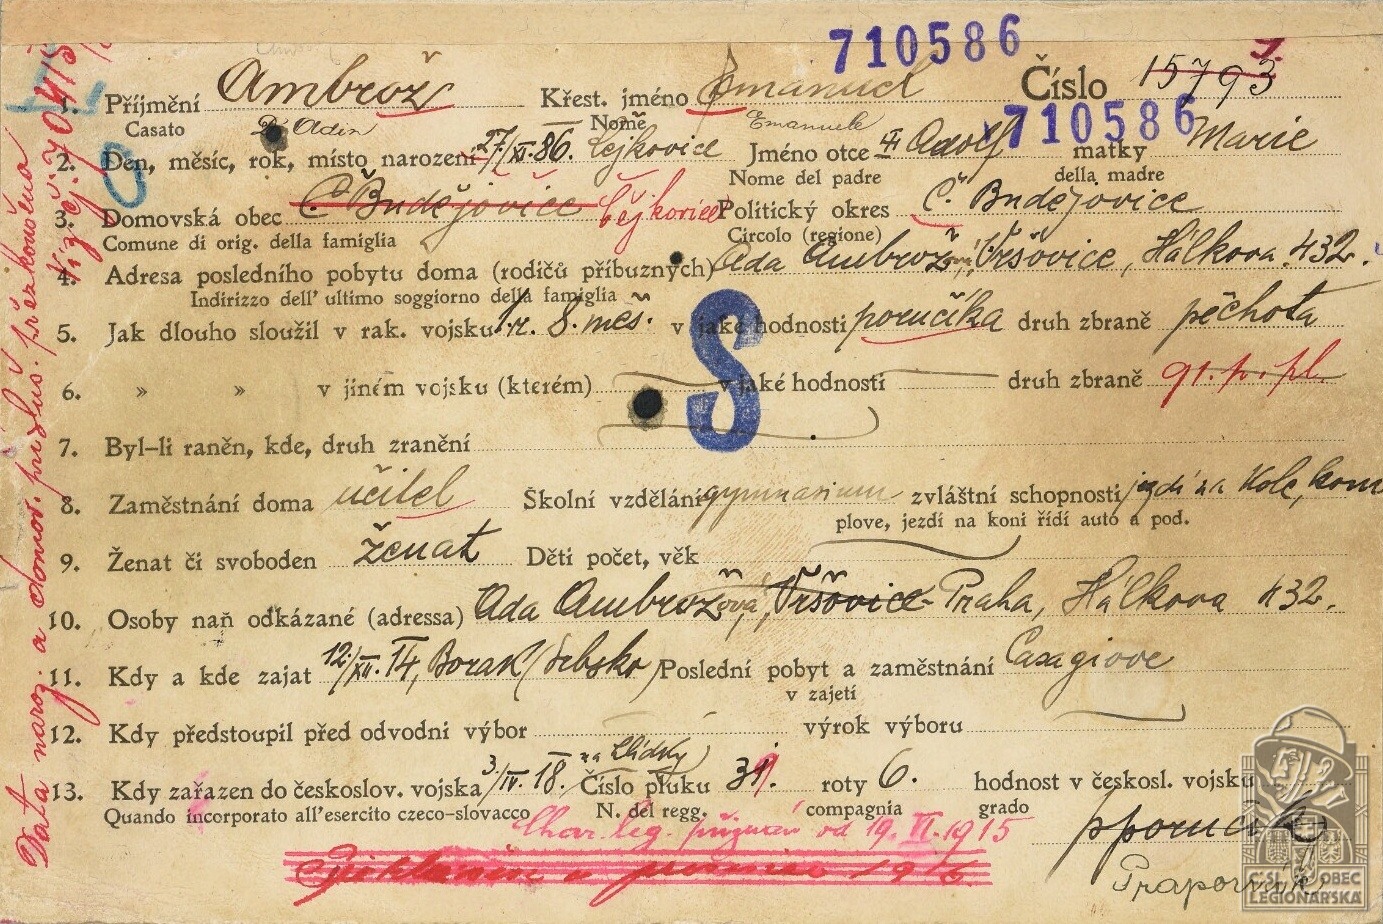 710586
1. Příjmení Ambrož Křest. jméno Emanuel Číslo 15793
Casato D'Adin Nome Emanuele 710586
2. Den, měsíc, rok, místo narození 27/XI. 86. Čejkovice Jméno otce Adolf matky Marie
Nome del padre della madre
3. Domovská obec Č. Budějovice Čejkovice Politický okres Č. Budějovice
Comune di orig. della famiglia Circolo (regione)
4. Adresa posledního pobytu doma (rodičů příbuzných) Ada Ambrožová, Vršovice, Hálkova 432.
Indirizzo dell' ultimo soggiorno della famiglia
5. Jak dlouho sloužil v rak. vojsku 1 r. 8. měs. v jaké hodnosti poručíka druh zbraně pěchota
6. » » v jiném vojsku (kterém) v jaké hodnosti druh zbraně 91. p. pl.
S
7. Byl-li raněn, kde, druh zranění
8. Zaměstnání doma učitel Školní vzdělání gymnasium zvláštní schopnosti jezdí na kole, kom
plove, jezdí na koni řídí auto a pod.
9. Ženat či svoboden ženat Děti počet, věk
10. Osoby naň odkázané (adressa) Ada Ambrožová, Vršovice - Praha, Hálkova 432.
11. Kdy a kde zajat 12./XII. 14, Borak (Srbsko) Poslední pobyt a zaměstnání Casagiove
v zajetí
12. Kdy předstoupil před odvodní výbor výrok výboru
na hlídky
13. Kdy zařazen do českoslov. vojska 3/IV. 18. Číslo pluku 31. roty 6. hodnost v českosl. vojsku
Quando incorporato all'esercito czeco-slovacco N. del regg. compagnia grado
Char. leg. přiznán od 19. VI. 1915 pporučík
Praporčík
Data naroz. a domov. přísluš. přezkoušena
Viz čj. 704/5
ČS. OBEC
LEGIONÁŘSKÁ